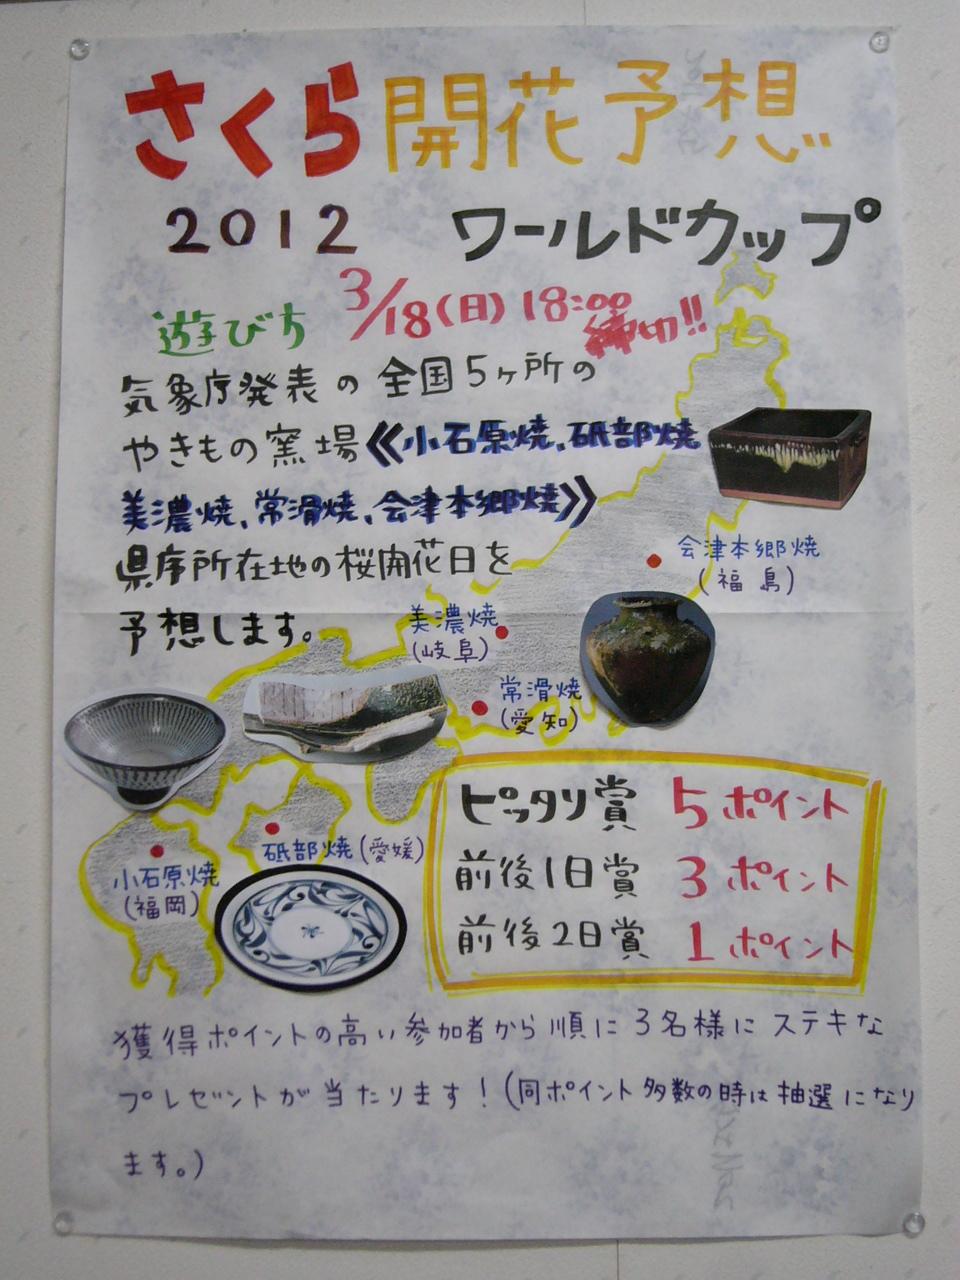 さくら開花予想
2012 ワールドカップ
遊び方 3/18(日) 18:00
締切!!
気象庁発表の全国5ヶ所の
やきもの窯場《小石原焼、砥部焼
美濃焼、常滑焼、会津本郷焼》
県庁所在地の桜開花日を
予想します。
会津本郷焼
(福島)
美濃焼
(岐阜)
常滑焼
(愛知)
砥部焼(愛媛)
小石原焼
(福岡)
ピッタリ賞 5ポイント
前後1日賞 3ポイント
前後2日賞 1ポイント
獲得ポイントの高い参加者から順に3名様にステキな
プレゼントが当たります!(同ポイント多数の時は抽選になり
ます。)